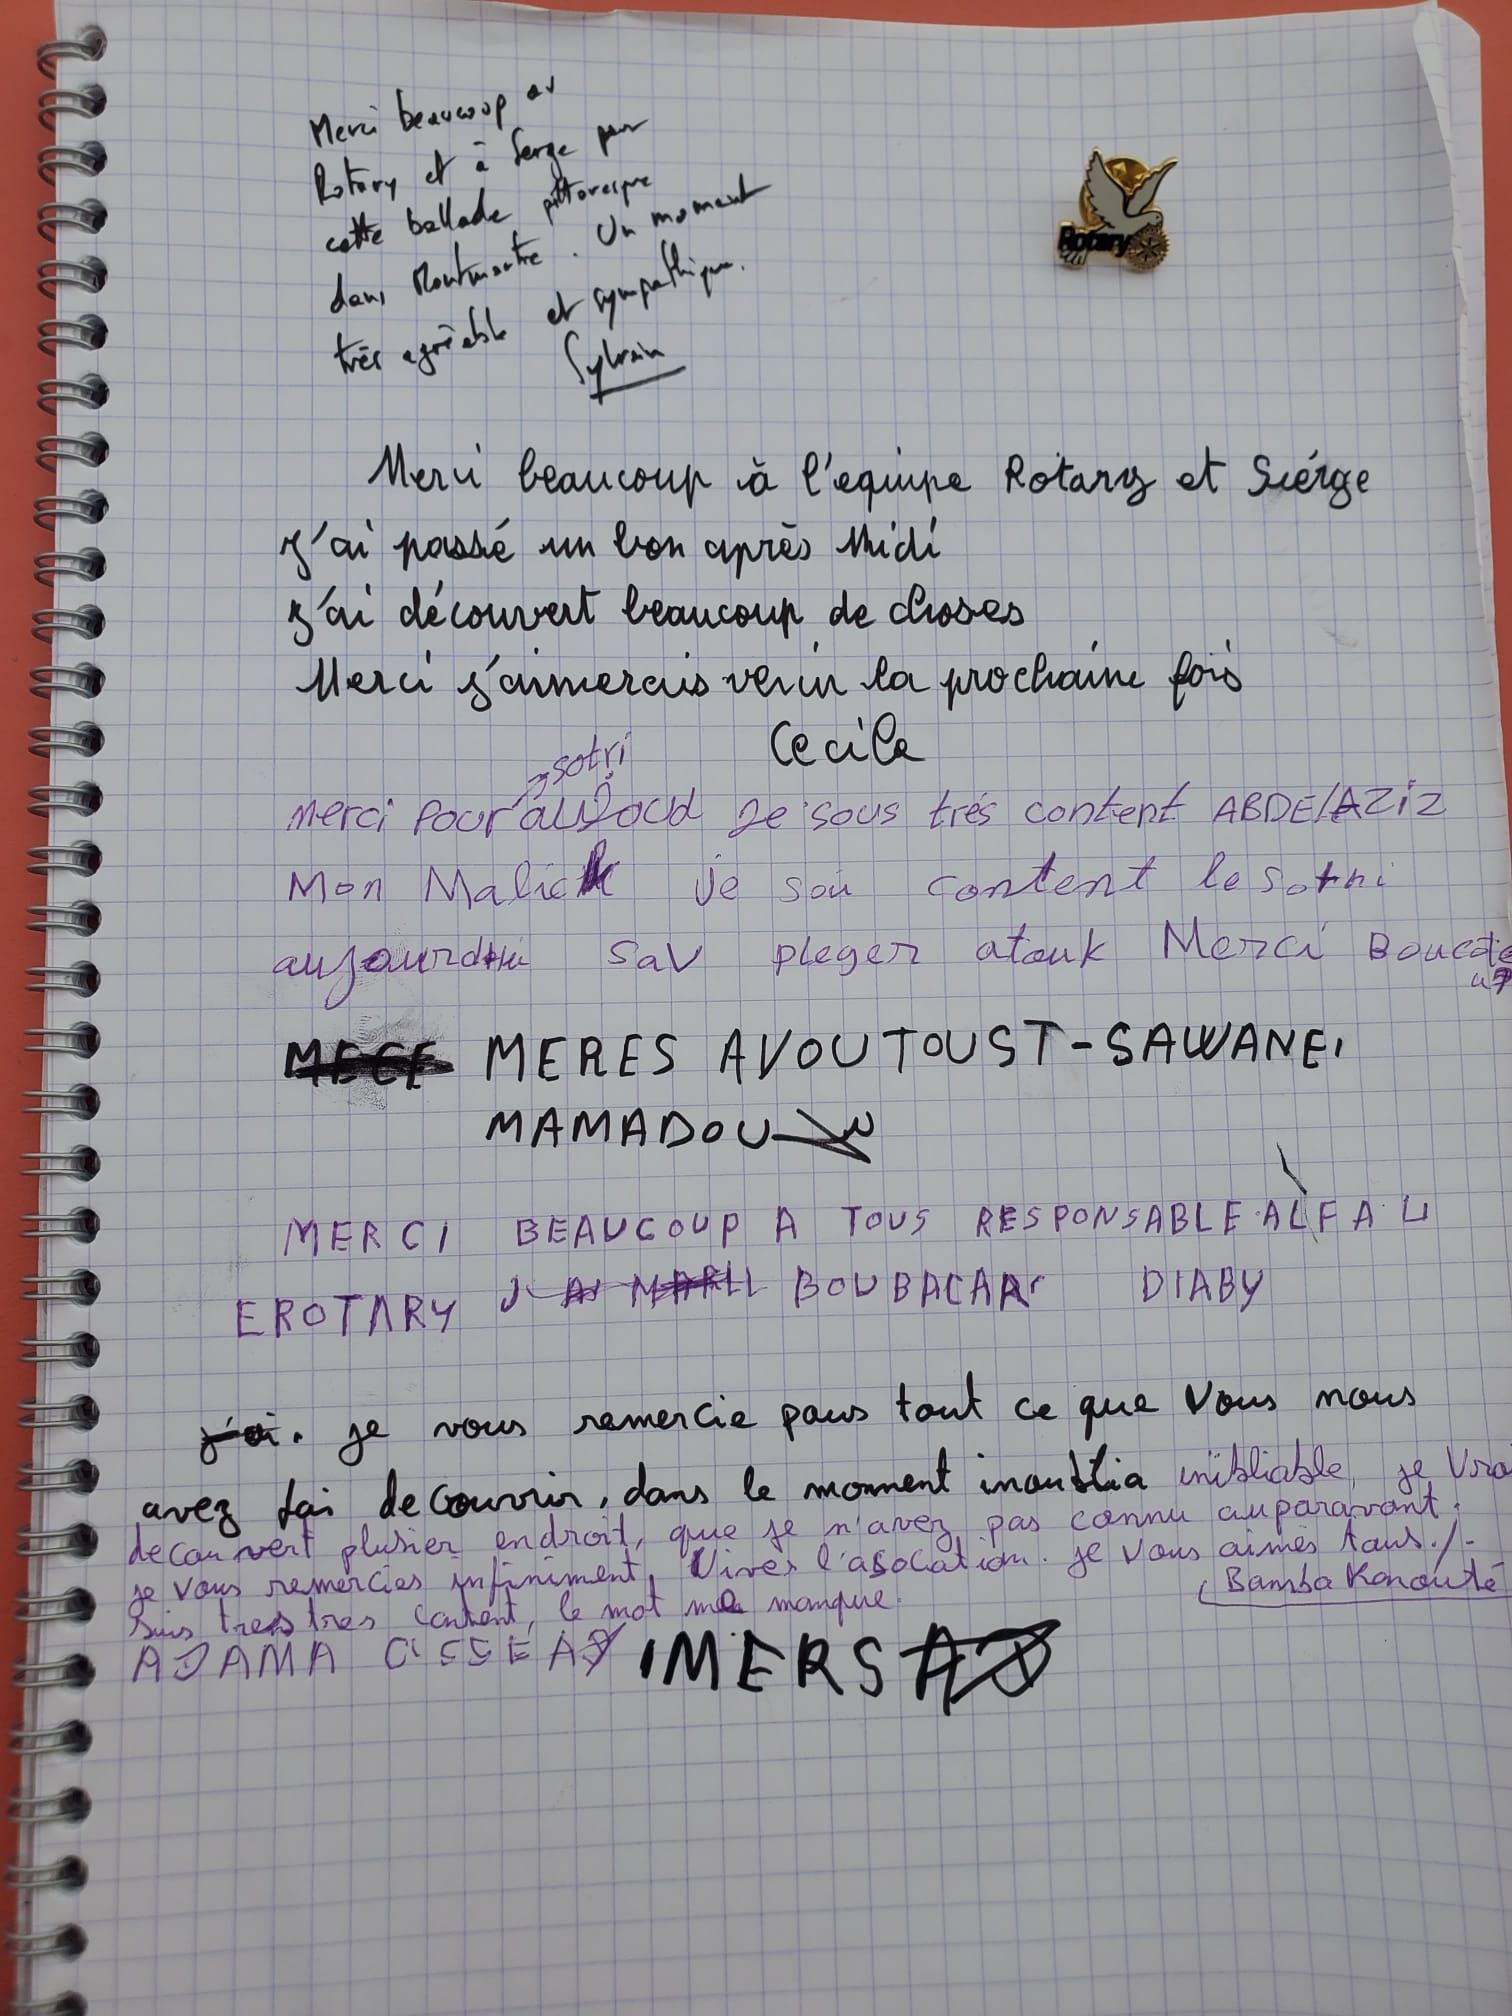 Merci beaucoup au
Rotary et à Serge pour
cette ballade pittoresque
dans Montmartre. Un moment
très agréable et sympathique.
Sylvain
Rotary
Merci beaucoup à l'equipe Rotary et Siérge
J'ai passé un bon après Midi
J'ai découvert beaucoup de choses
Merci j'aimerais venir la prochaine fois
Cecile
sotri
Merci pour Je sous trés content ABDELAZIZ
Mon Malick je soi content le sotri
aujourdhui sav pleger atouk Merci
MERES AVOUTOUST-SAWANE
MAMADOU
MERCI BEAUCOUP A TOUS RESPONSABLE ALFA LI
EROTARY BOUBACAR DIABY
j'ai. je vous remercie pour tout ce que Vous nous
avez fai decouvrir, dans le moment inoublia inibliable, je Vrai
decouvert plusier endroit, que je n'avez pas connu auparavant.
je vous remercies infiniment, Vives l'asociation. je vous aimes tous./-
Suis tres tres content, le mot me manque. Bamba Konouté
ADAMA CISSE IMERS